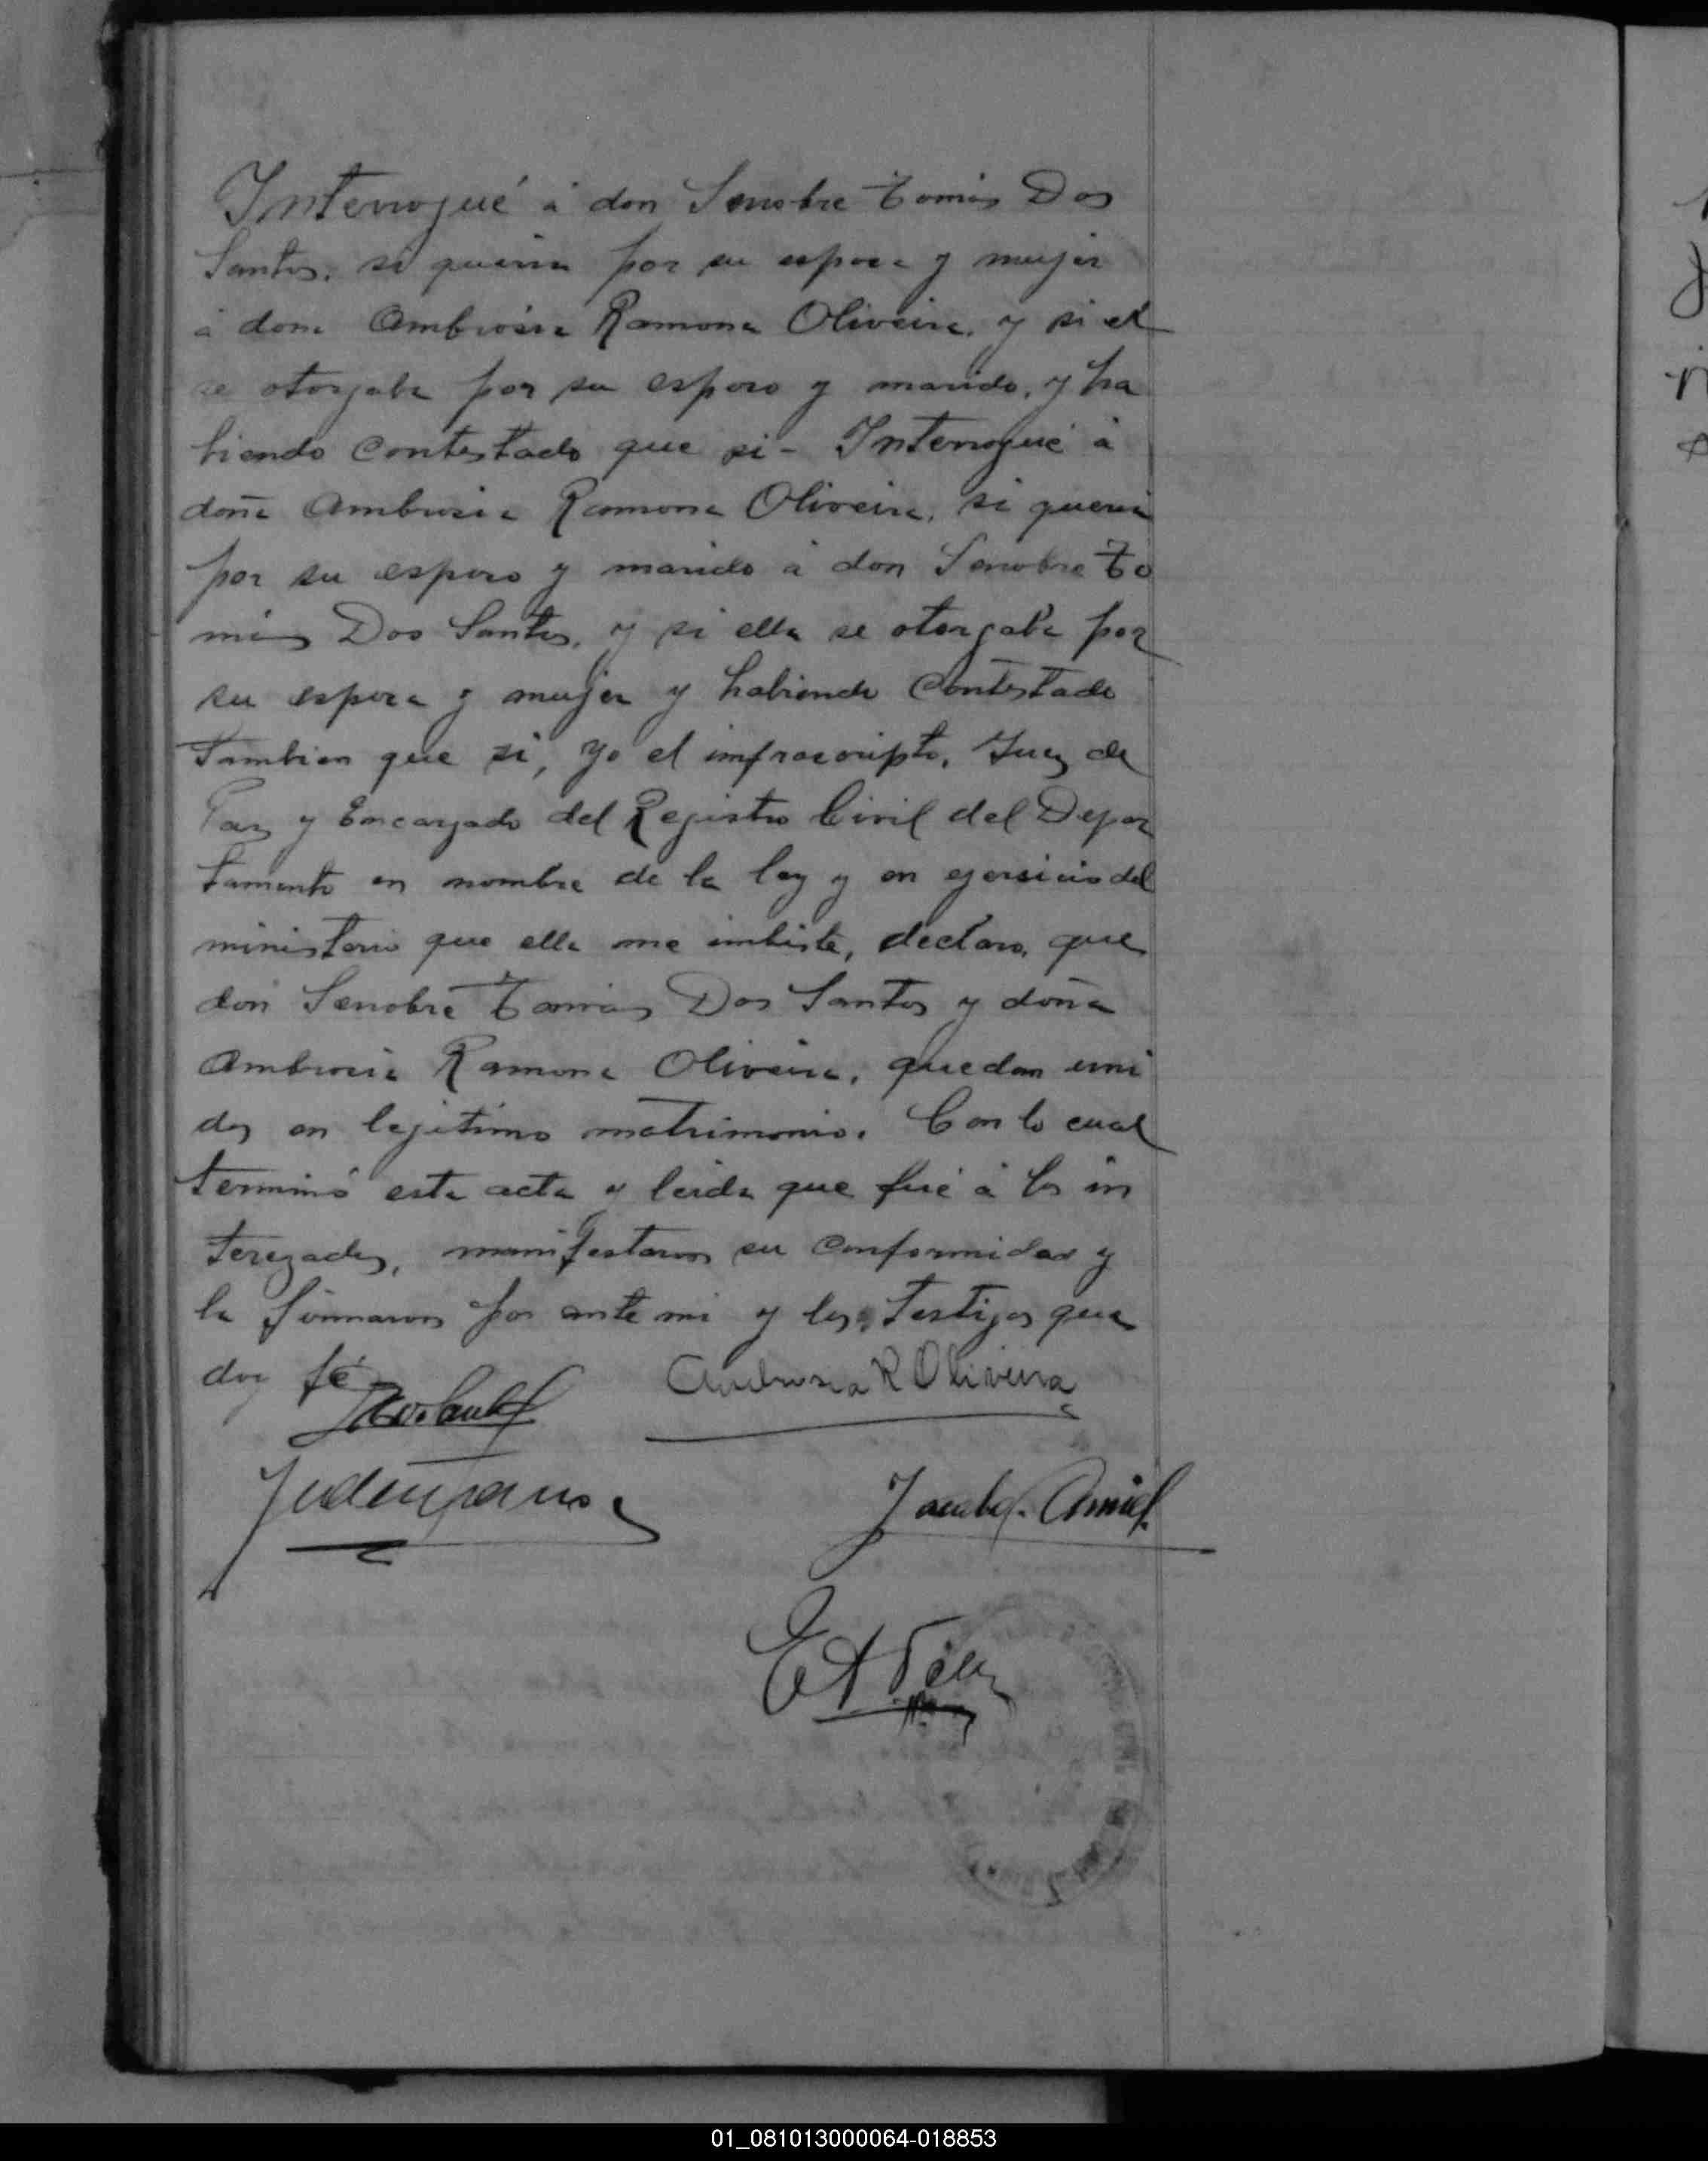 Interrogué á don Senobre Tomás Dos
Santos, si queria por su esposa y mujer
á doña Ambrosia Ramona Oliveira, y si el
se otorgaba por su esposo y marido, y ha
biendo contestado que si - Interrogué á
doña Ambrosia Ramona Oliveira, si queria
por su esposo y marido á don Senobre To
más Dos Santos, y si ella se otorgaba por
su esposa y mujer y habiendo contestado
tambien que si, yo el infrascripto, Juez de
Paz y Encargado del Registro Civil del Depar
tamento en nombre de la ley y en ejersicio del
ministerio que ella me imbiste, declaro, que
don Senobre Tomás Dos Santos y doña
Ambrosia Ramona Oliveira, quedan uni
dos en lejitimo matrimonio. Con lo cual
terminó esta acta y leida que fué á los in
terezados, manifestaron su conformidad y
la firmaron por ante mi y los testigos que
doy fé
Ambrosia R Oliveira
Jacobo. Amiel.